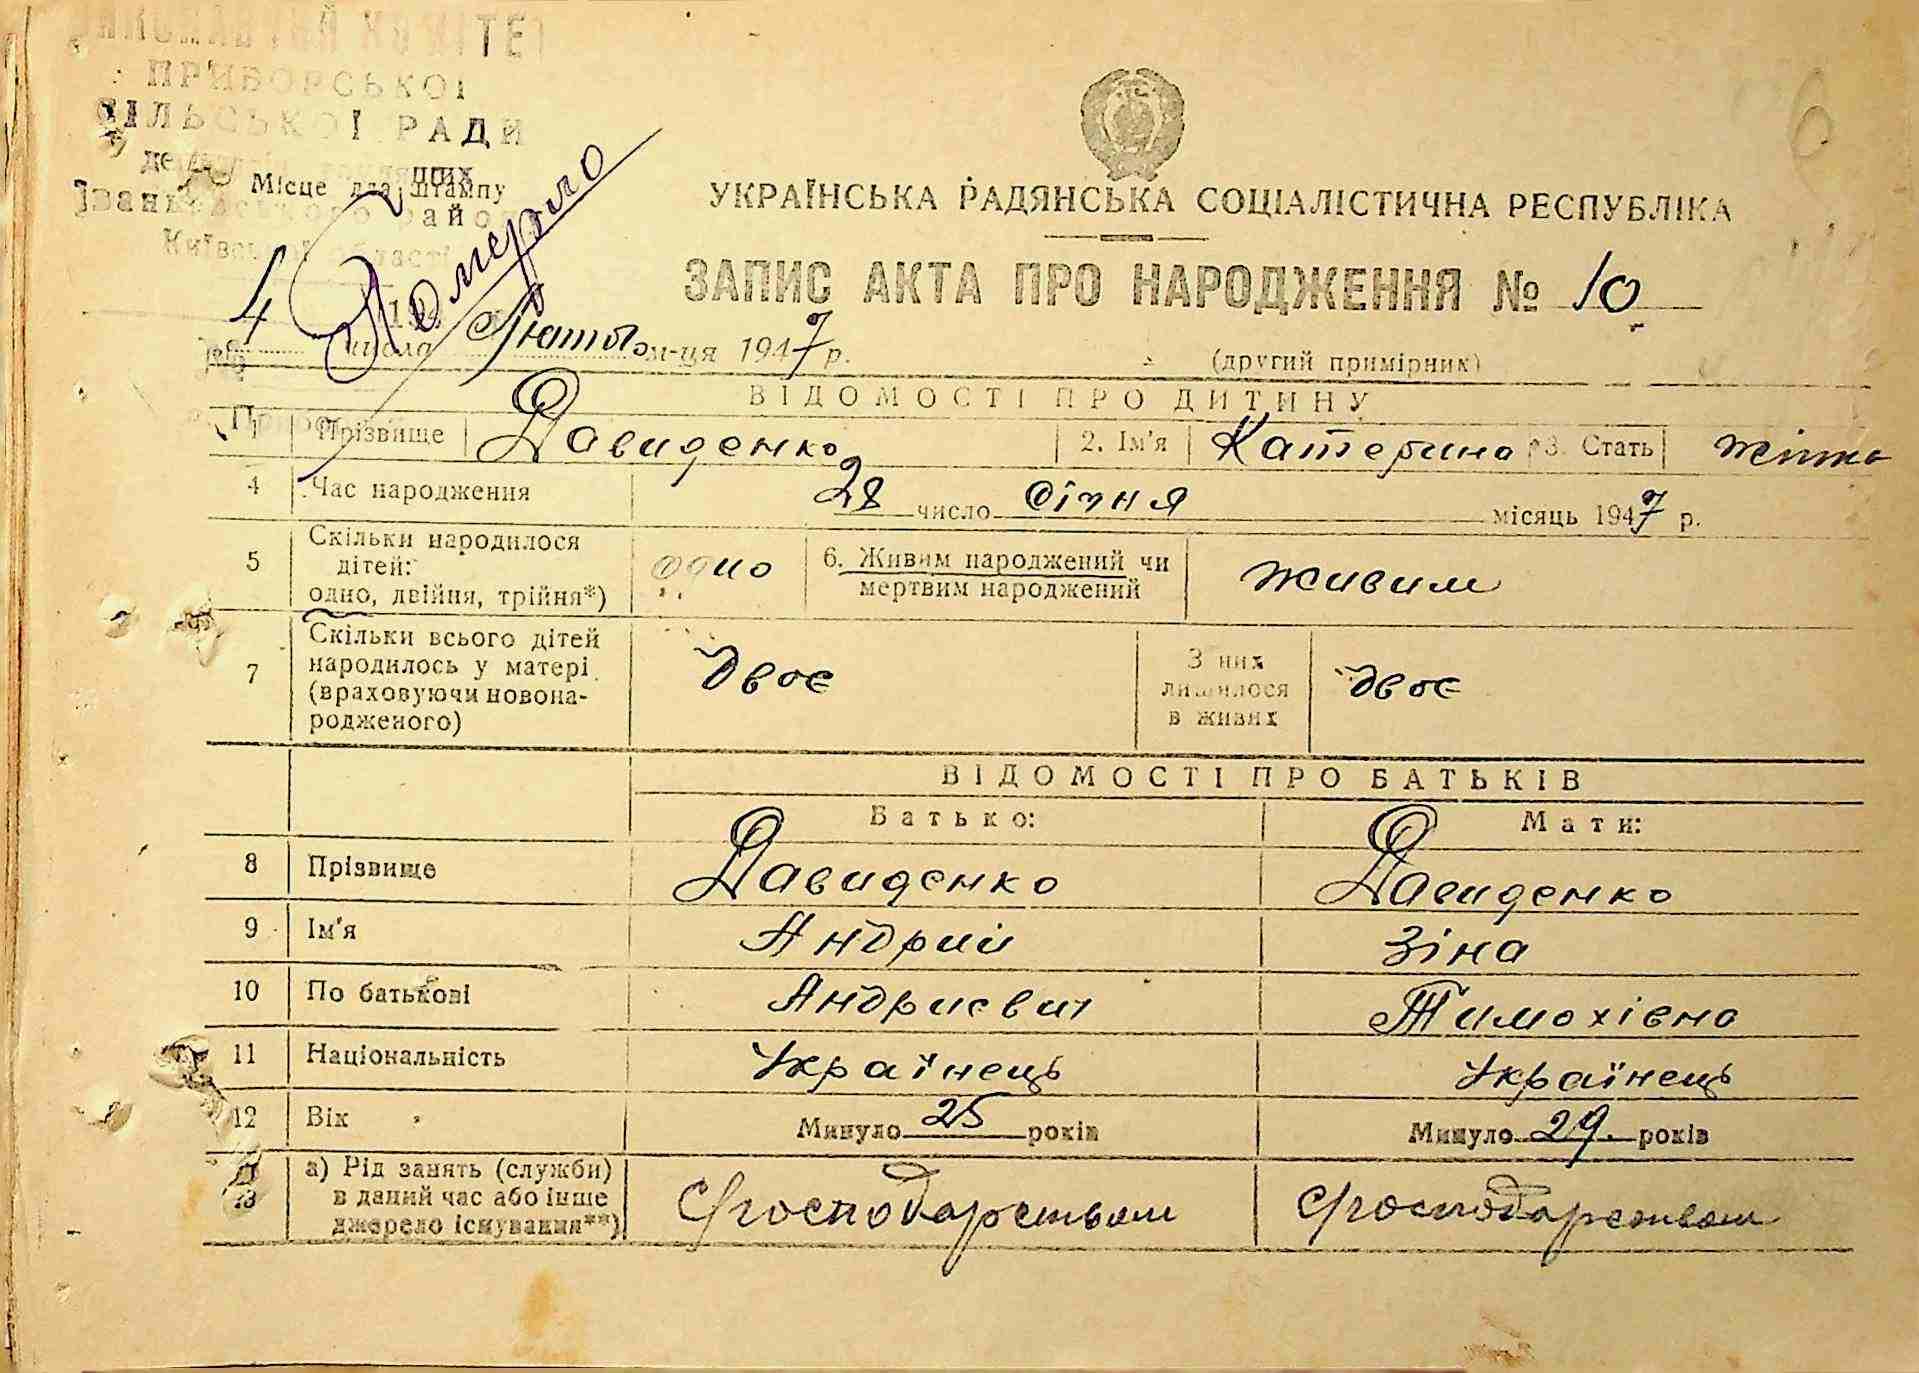 ПРИБОРСЬКОЇ
СІЛЬСЬКОЇ РАДИ
Місце для штампу
Померло
УКРАЇНСЬКА РАДЯНСЬКА СОЦІАЛІСТИЧНА РЕСПУБЛІКА
ЗАПИС АКТА ПРО НАРОДЖЕННЯ № 10
4 числа Лютого м-ця 1947 р.
(другий примірник)
ВІДОМОСТІ ПРО ДИТИНУ
1 Прізвище Давиденко 2. Ім'я Катерина 3. Стать жіноч
4 Час народження 28 число Січня місяць 1947 р.
5 Скільки народилося дітей: одно, двійня, трійня*) одно 6. Живим народжений чи мертвим народжений живим
7 Скільки всього дітей народилось у матері (враховуючи новонародженого) двоє З них лишилося в живих двоє
ВІДОМОСТІ ПРО БАТЬКІВ
Батько: Мати:
8 Прізвище Давиденко Давиденко
9 Ім'я Андрий Зіна
10 По батькові Андриєвич Тимохівна
11 Національність Українець Українець
12 Вік Минуло 25 років Минуло 29 років
13 а) Рід занять (служби) в даний час або інше джерело існування**) Господарством Господарством